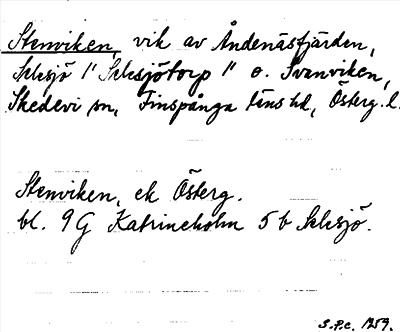 Stenviken, vik av Åndenäsfjärden,
sel. sjö 1" Skirsjötorp 1" o. Svanviken,
Skedevi sn, Finspånga läns hd, Österg. l.
Stenviken, ek Österg.
bl. 9 G Katrineholm 5 b
S.P.C. 1959.